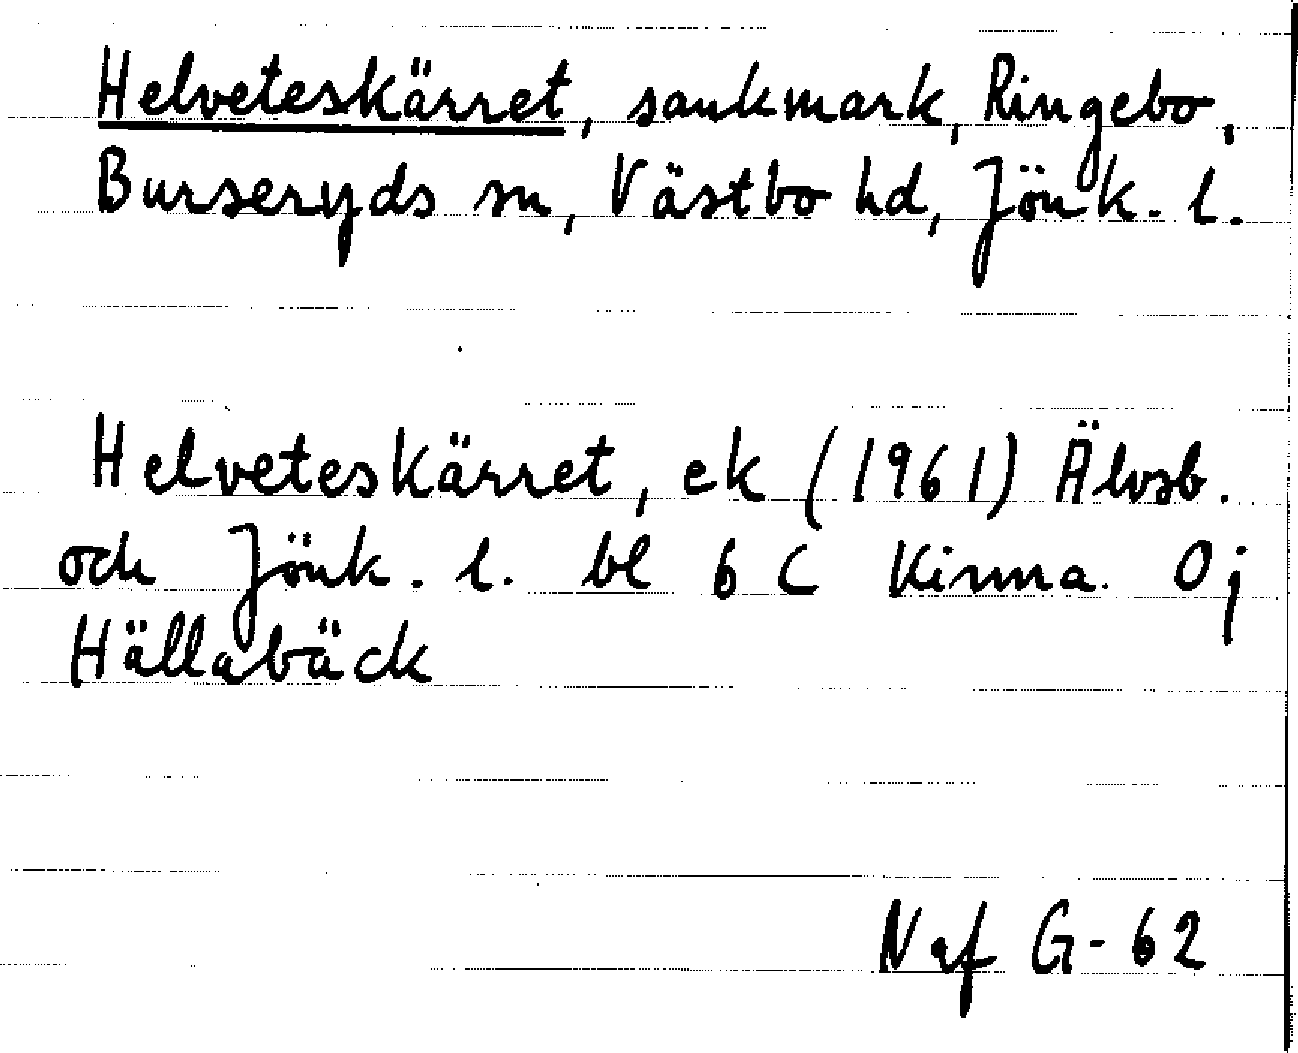 Helveteskärret, sankmark, Ringebo,
Burseryds sn, Västbo hd, Jönk. l.
Helveteskärret, ek (1961) Älvsb.
och Jönk. l. bl 6 C Kinna. 0j
Hällabäck
Naf G-62